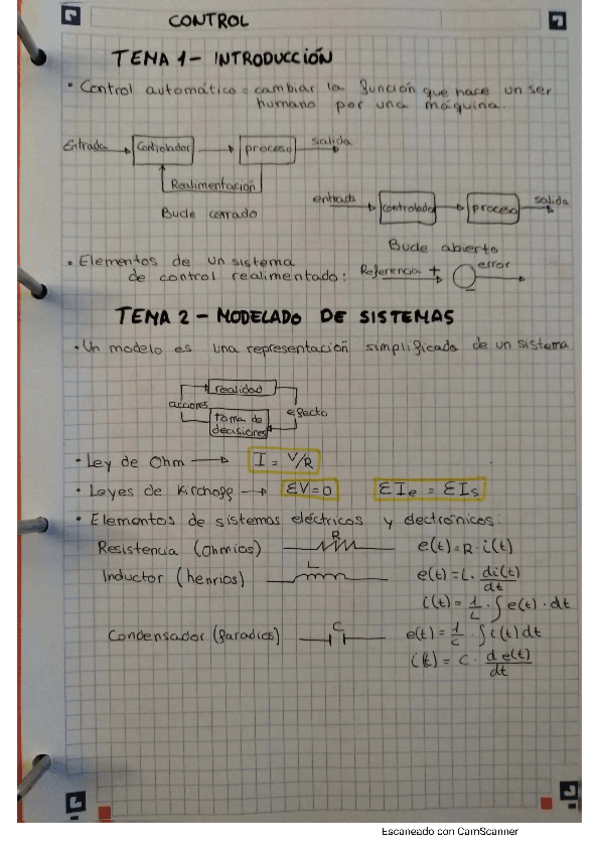 CONTROL
TEMA 1 - INTRODUCCIÓN
• Control automático = cambiar la función que hace un ser
humano por una máquina.
Entrada
Controlador
proceso
salida
Realimentación
Bucle cerrado
entrada
controlador
proceso
salida
Bucle abierto
• Elementos de un sistema
de control realimentado:
Referencia +
error
TEMA 2 - MODELADO DE SISTEMAS
• Un modelo es una representación simplificada de un sistema
realidad
acciones
efecto
toma de
decisiones
• Ley de Ohm → I = V/R
• Leyes de Kirchoff → ΣV = 0 ΣIe = ΣIs
• Elementos de sistemas eléctricos y electrónicos:
Resistencia (Ohmios) R e(t) = R · i(t)
Inductor (henrios) L e(t) = L · di(t)/dt
i(t) = 1/L · ∫ e(t) · dt
Condensador (faradios) C e(t) = 1/C · ∫ i(t) dt
i(t) = C · de(t)/dt
Escaneado con CamScanner